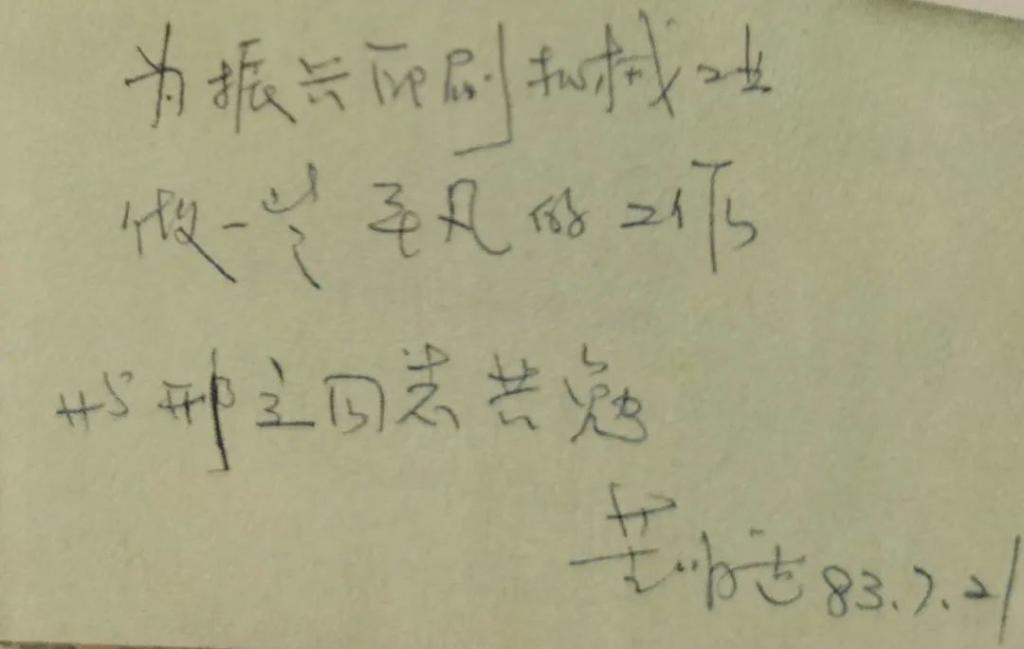 为振兴印刷机械工业
做一些平凡的工作
与邢立同志共勉
83.7.21